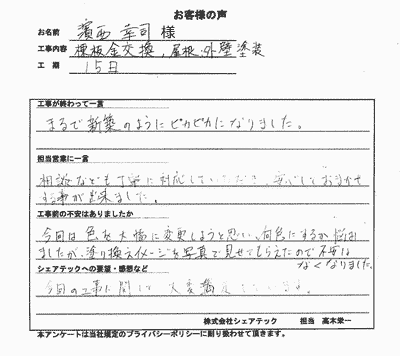 お客様の声
お名前 濱西 幸司 様
工事内容 棟板金交換、屋根・外壁塗装
工 期 15日
工事が終わって一言
まるで新築のようにピカピカになりました。
担当営業に一言
相談なども丁寧に対応していただき、安心しておまかせ
する事が出来ました。
工事前の不安はありましたか
今回は色を大幅に変更しようと思い、何色にするか悩み
ましたが、塗り換えイメージを写真で見せてもらえたので不安は
なくなりました。
シェアテックへの要望・感想など
今回の工事に関して大変満足しています。
株式会社シェアテック 担当 高木栄一
本アンケートは当社規定のプライバシーポリシーに則り扱わせて頂きます。